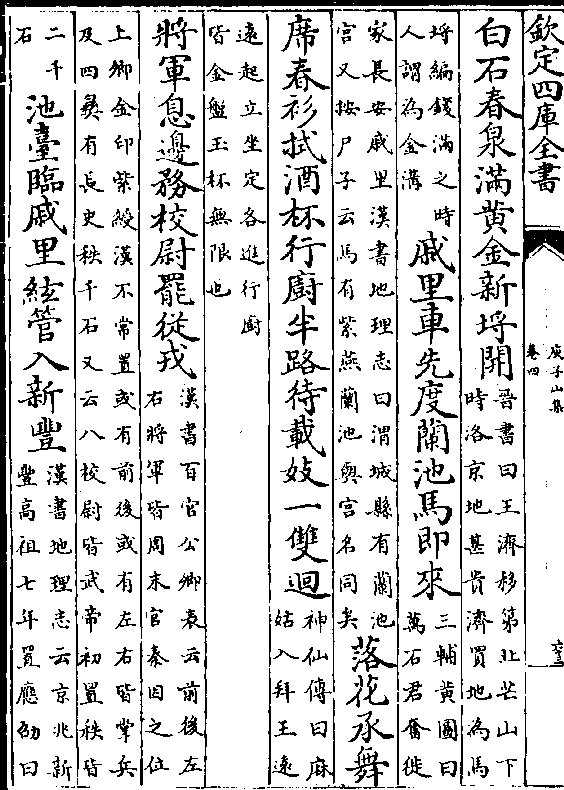 欽定四庫全書
庾子山集
卷四
白石春泉滿黄金新埒開
晉書曰王濟移第北芒山下
時洛京地甚貴濟買地為馬
埒編錢滿之時
人謂為金溝
戚里車先度蘭池馬即來
三輔黄圖曰
萬石君奮徙
家長安戚里漢書地理志曰渭城縣有蘭池
宫又按尸子云馬有紫燕蘭池與宫名同矣
落花承舞
席春衫拭酒杯行廚半路待載妓一雙迴
神仙傳曰麻
姑入拜王遠
遠起立坐定各進行廚
皆金盤玉杯無限也
將軍息邊務校尉罷從戎
漢書百官公卿表云前後左
右將軍皆周末官秦因之位
上卿金印紫綬漢不常置或有前後或有左右皆掌兵
及四彛有長史秩千石又云八校尉皆武帝初置秩皆
二千
石
池臺臨戚里絃管入新豐
漢書地理志云京兆新
豐高祖七年置應劭曰